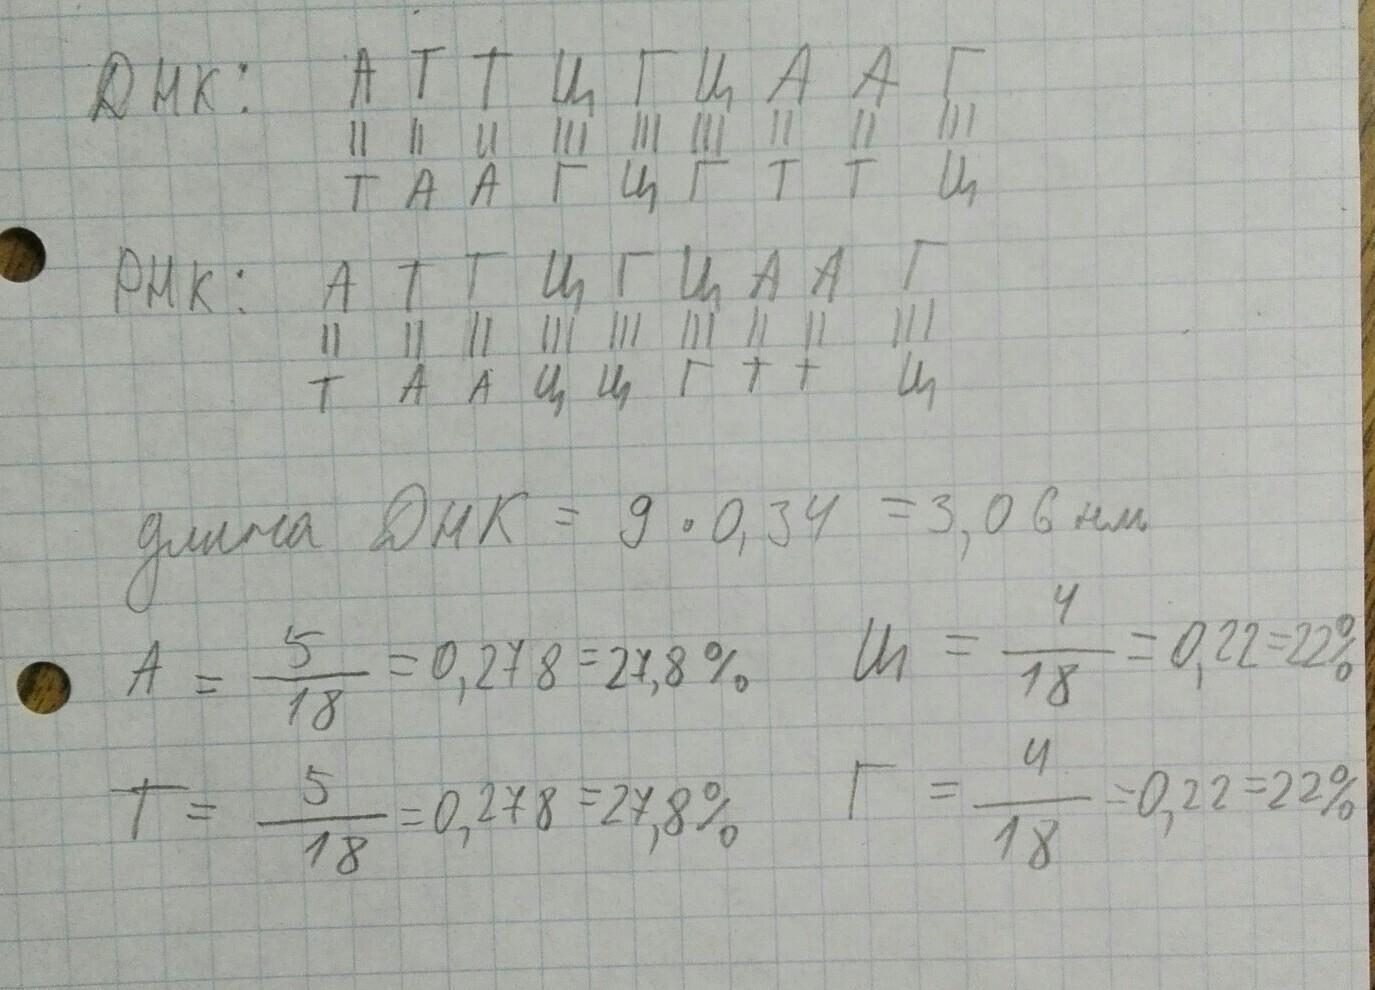 ДНК: А Т Т Ц Г Ц А А Г
|| || || ||| ||| ||| || || |||
Т А А Г Ц Г Т Т Ц
РНК: А Т Т Ц Г Ц А А Г
|| || || ||| ||| ||| || || |||
Т А А Ц Ц Г Т Т Ц
длина ДНК = 9 • 0,34 = 3,06 нм
А = 5/18 = 0,278 = 27,8% Ц = 4/18 = 0,22 = 22%
Т = 5/18 = 0,278 = 27,8% Г = 4/18 = 0,22 = 22%